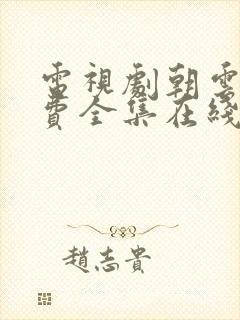 電視劇朝雲
費全集在綫
趙志貴